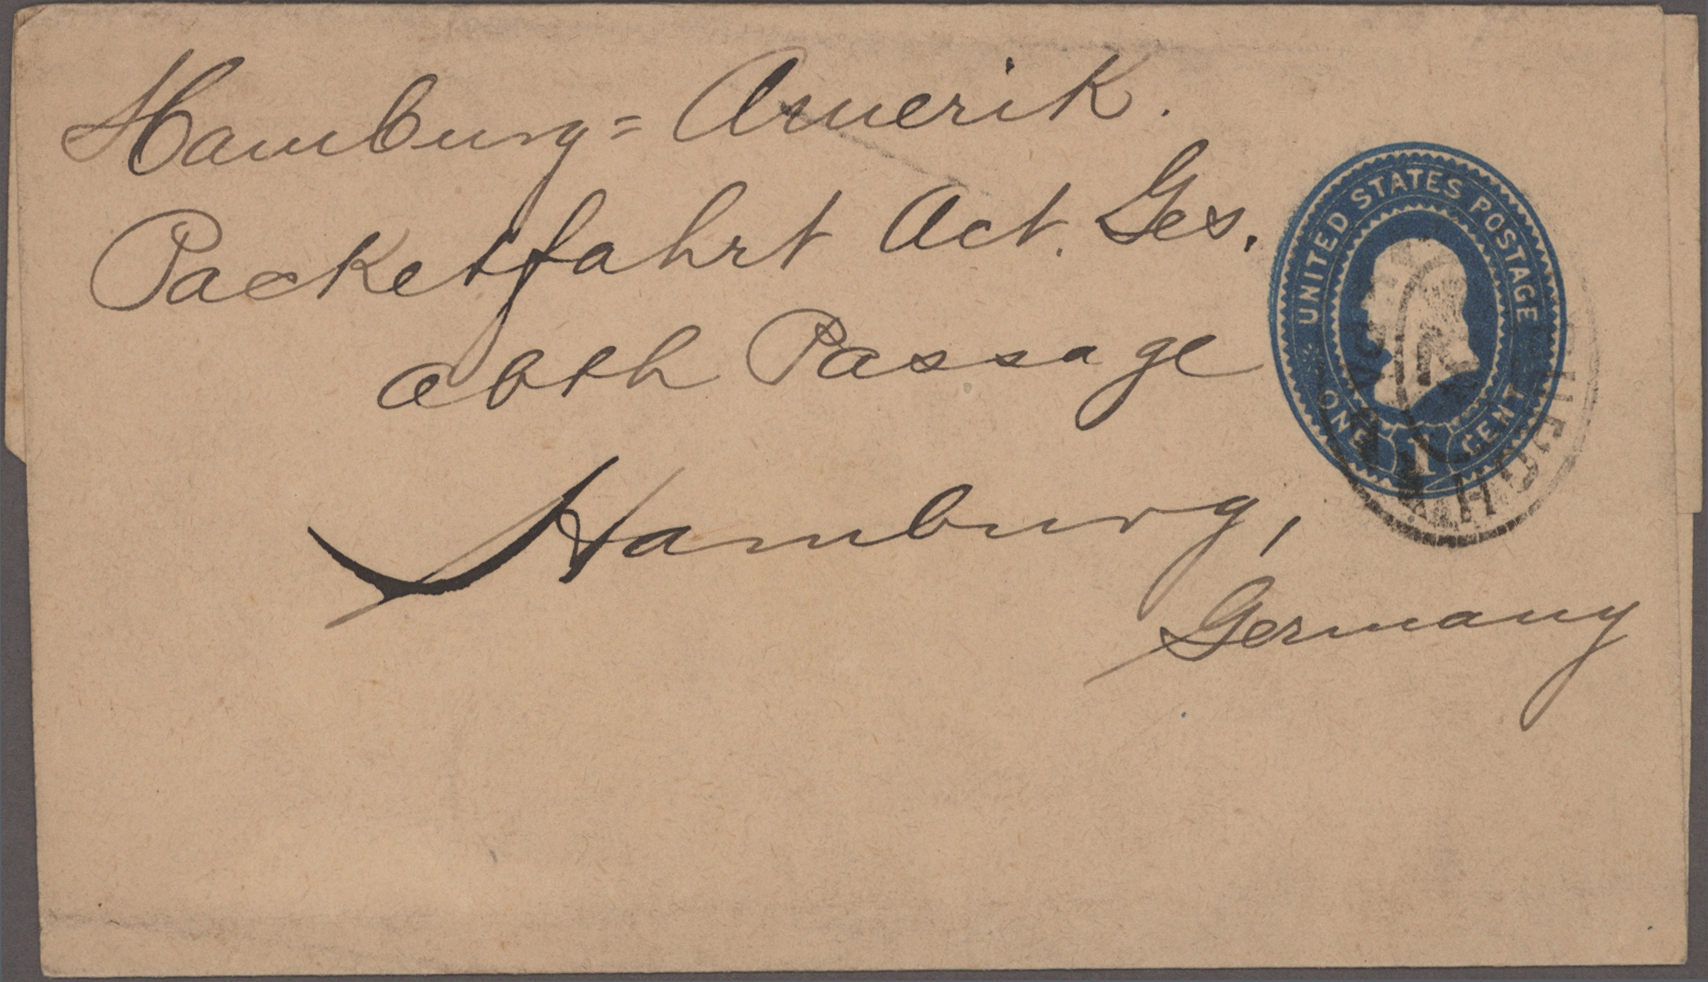 Hamburg=Amerik.
Packetfahrt Act. Ges.
abth Passage
Hamburg,
Germany
UNITED STATES POSTAGE
ONE 1 CENT